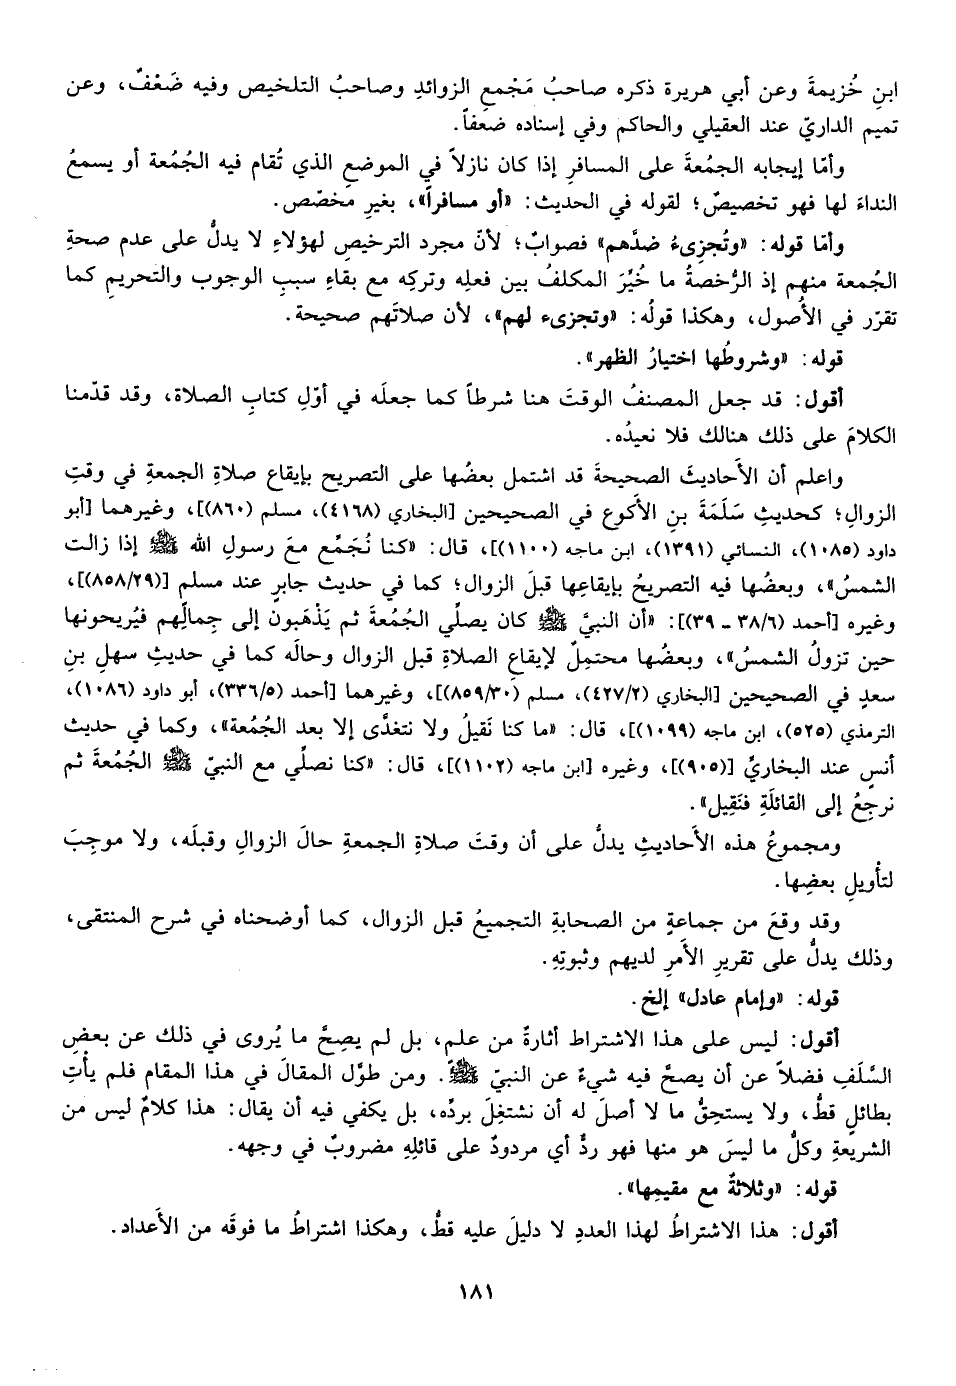 ابنِ خُزيمةَ وعن أبي هريرة ذكره صاحبُ مَجْمعِ الزوائدِ وصاحبُ التلخيص وفيه ضَعْفٌ، وعن
تميم الداريّ عند العقيلي والحاكم وفي إسناده ضعفاً.
وأمّا إيجابه الجمُعةَ على المسافرِ إذا كان نازلاً في الموضعِ الذي تُقام فيه الجُمُعة أو يسمعُ
النداءَ لها فهو تخصيصٌ؛ لقوله في الحديث: «أو مسافراً»، بغيرِ مخصّص.
وأمّا قوله: «وتُجزِىءُ ضدَّهم» فصوابٌ؛ لأنّ مجرد الترخيصِ لهؤلاءِ لا يدلُّ على عدم صحةِ
الجُمعة منهم إذ الرُّخصةُ ما خُيِّرَ المكلفُ بين فعلِه وتركِه مع بقاءِ سببِ الوجوب والتحريمِ كما
تقرّر في الأُصول، وهكذا قولُه: «وتجزىء لهم»، لأن صلاتَهم صحيحة.
قوله: «وشروطُها اختيارُ الظهر».
أقول: قد جعل المصنفُ الوقتَ هنا شرطاً كما جعلَه في أوّلِ كتابِ الصلاة، وقد قدّمنا
الكلامَ على ذلك هنالك فلا نعيدُه.
واعلم أن الأَحاديثَ الصحيحةَ قد اشتمل بعضُها على التصريح بإيقاع صلاةِ الجمعةِ في وقتِ
الزوالِ؛ كحديثِ سَلَمَةَ بنِ الأكوع في الصحيحين [البخاري (٤١٦٨)، مسلم (٨٦٠)]، وغيرهما [أبو
داود (١٠٨٥)، النسائي (١٣٩١)، ابن ماجه (١١٠٠)]، قال: «كنا نُجَمِّع معَ رسولِ الله ﷺ إذا زالت
الشمسُ»، وبعضُها فيه التصريحُ بإيقاعِها قبلَ الزوال؛ كما في حديث جابرٍ عند مسلم [(٨٥٨/٢٩)]،
وغيره [أحمد (٣٨/٦ ـ ٣٩)]: «أن النبيَّ ﷺ كان يصلِّي الجُمُعةَ ثم يَذْهَبون إلى جِمالِهم فيُريحونها
حين تزولُ الشمسُ»، وبعضُها محتمِلٌ لإيقاع الصلاةِ قبل الزوال وحالَه كما في حديثِ سهلِ بنِ
سعدٍ في الصحيحين [البخاري (٤٢٧/٢)، مسلم (٨٥٩/٣٠)]، وغيرهما [أحمد (٣٣٦/٥)، أبو داود (١٠٨٦)،
الترمذي (٥٢٥)، ابن ماجه (١٠٩٩)]، قال: «ما كنا نَقيلُ ولا نتغدَّى إلا بعد الجُمُعة»، وكما في حديث
أنسٍ عند البخاريِّ [(٩٠٥)]، وغيره [ابن ماجه (١١٠٢)]، قال: «كنا نصلِّي مع النبيّ ﷺ الجُمُعةَ ثم
نرجِعُ إلى القائلَةِ فنَقِيل».
ومجموعُ هذه الأَحاديثِ يدلُّ على أن وقتَ صلاةِ الجمعةِ حالَ الزوالِ وقبلَه، ولا موجِبَ
لتأويلِ بعضِها.
وقد وقعَ من جماعةٍ من الصحابةِ التجميعُ قبل الزوال، كما أوضحناه في شرح المنتقى،
وذلك يدلُّ على تقريرِ الأَمرِ لديهم وثبوتِهِ.
قوله: «وإمام عادل» إلخ.
أقول: ليس على هذا الاشتراط أثارةٌ من علم، بل لم يصِحَّ ما يُروى في ذلك عن بعضِ
السَّلَفِ فضلاً عن أن يصحَّ فيه شيءٌ عن النبيّ ﷺ. ومن طوَّل المقالَ في هذا المقام فلم يأتِ
بطائلٍ قطُّ، ولا يستحِقُّ ما لا أصلَ له أن نشتغِلَ بردِّه، بل يكفي فيه أن يقال: هذا كلامٌ ليس من
الشريعةِ وكلُّ ما ليسَ هو منها فهو ردٌّ أي مردودٌ على قائلِهِ مضروبٌ في وجهه.
قوله: «وثلاثةٌ مع مقيمِها».
أقول: هذا الاشتراطُ لهذا العددِ لا دليلَ عليه قطُّ، وهكذا اشتراطُ ما فوقَه من الأَعداد.
١٨١